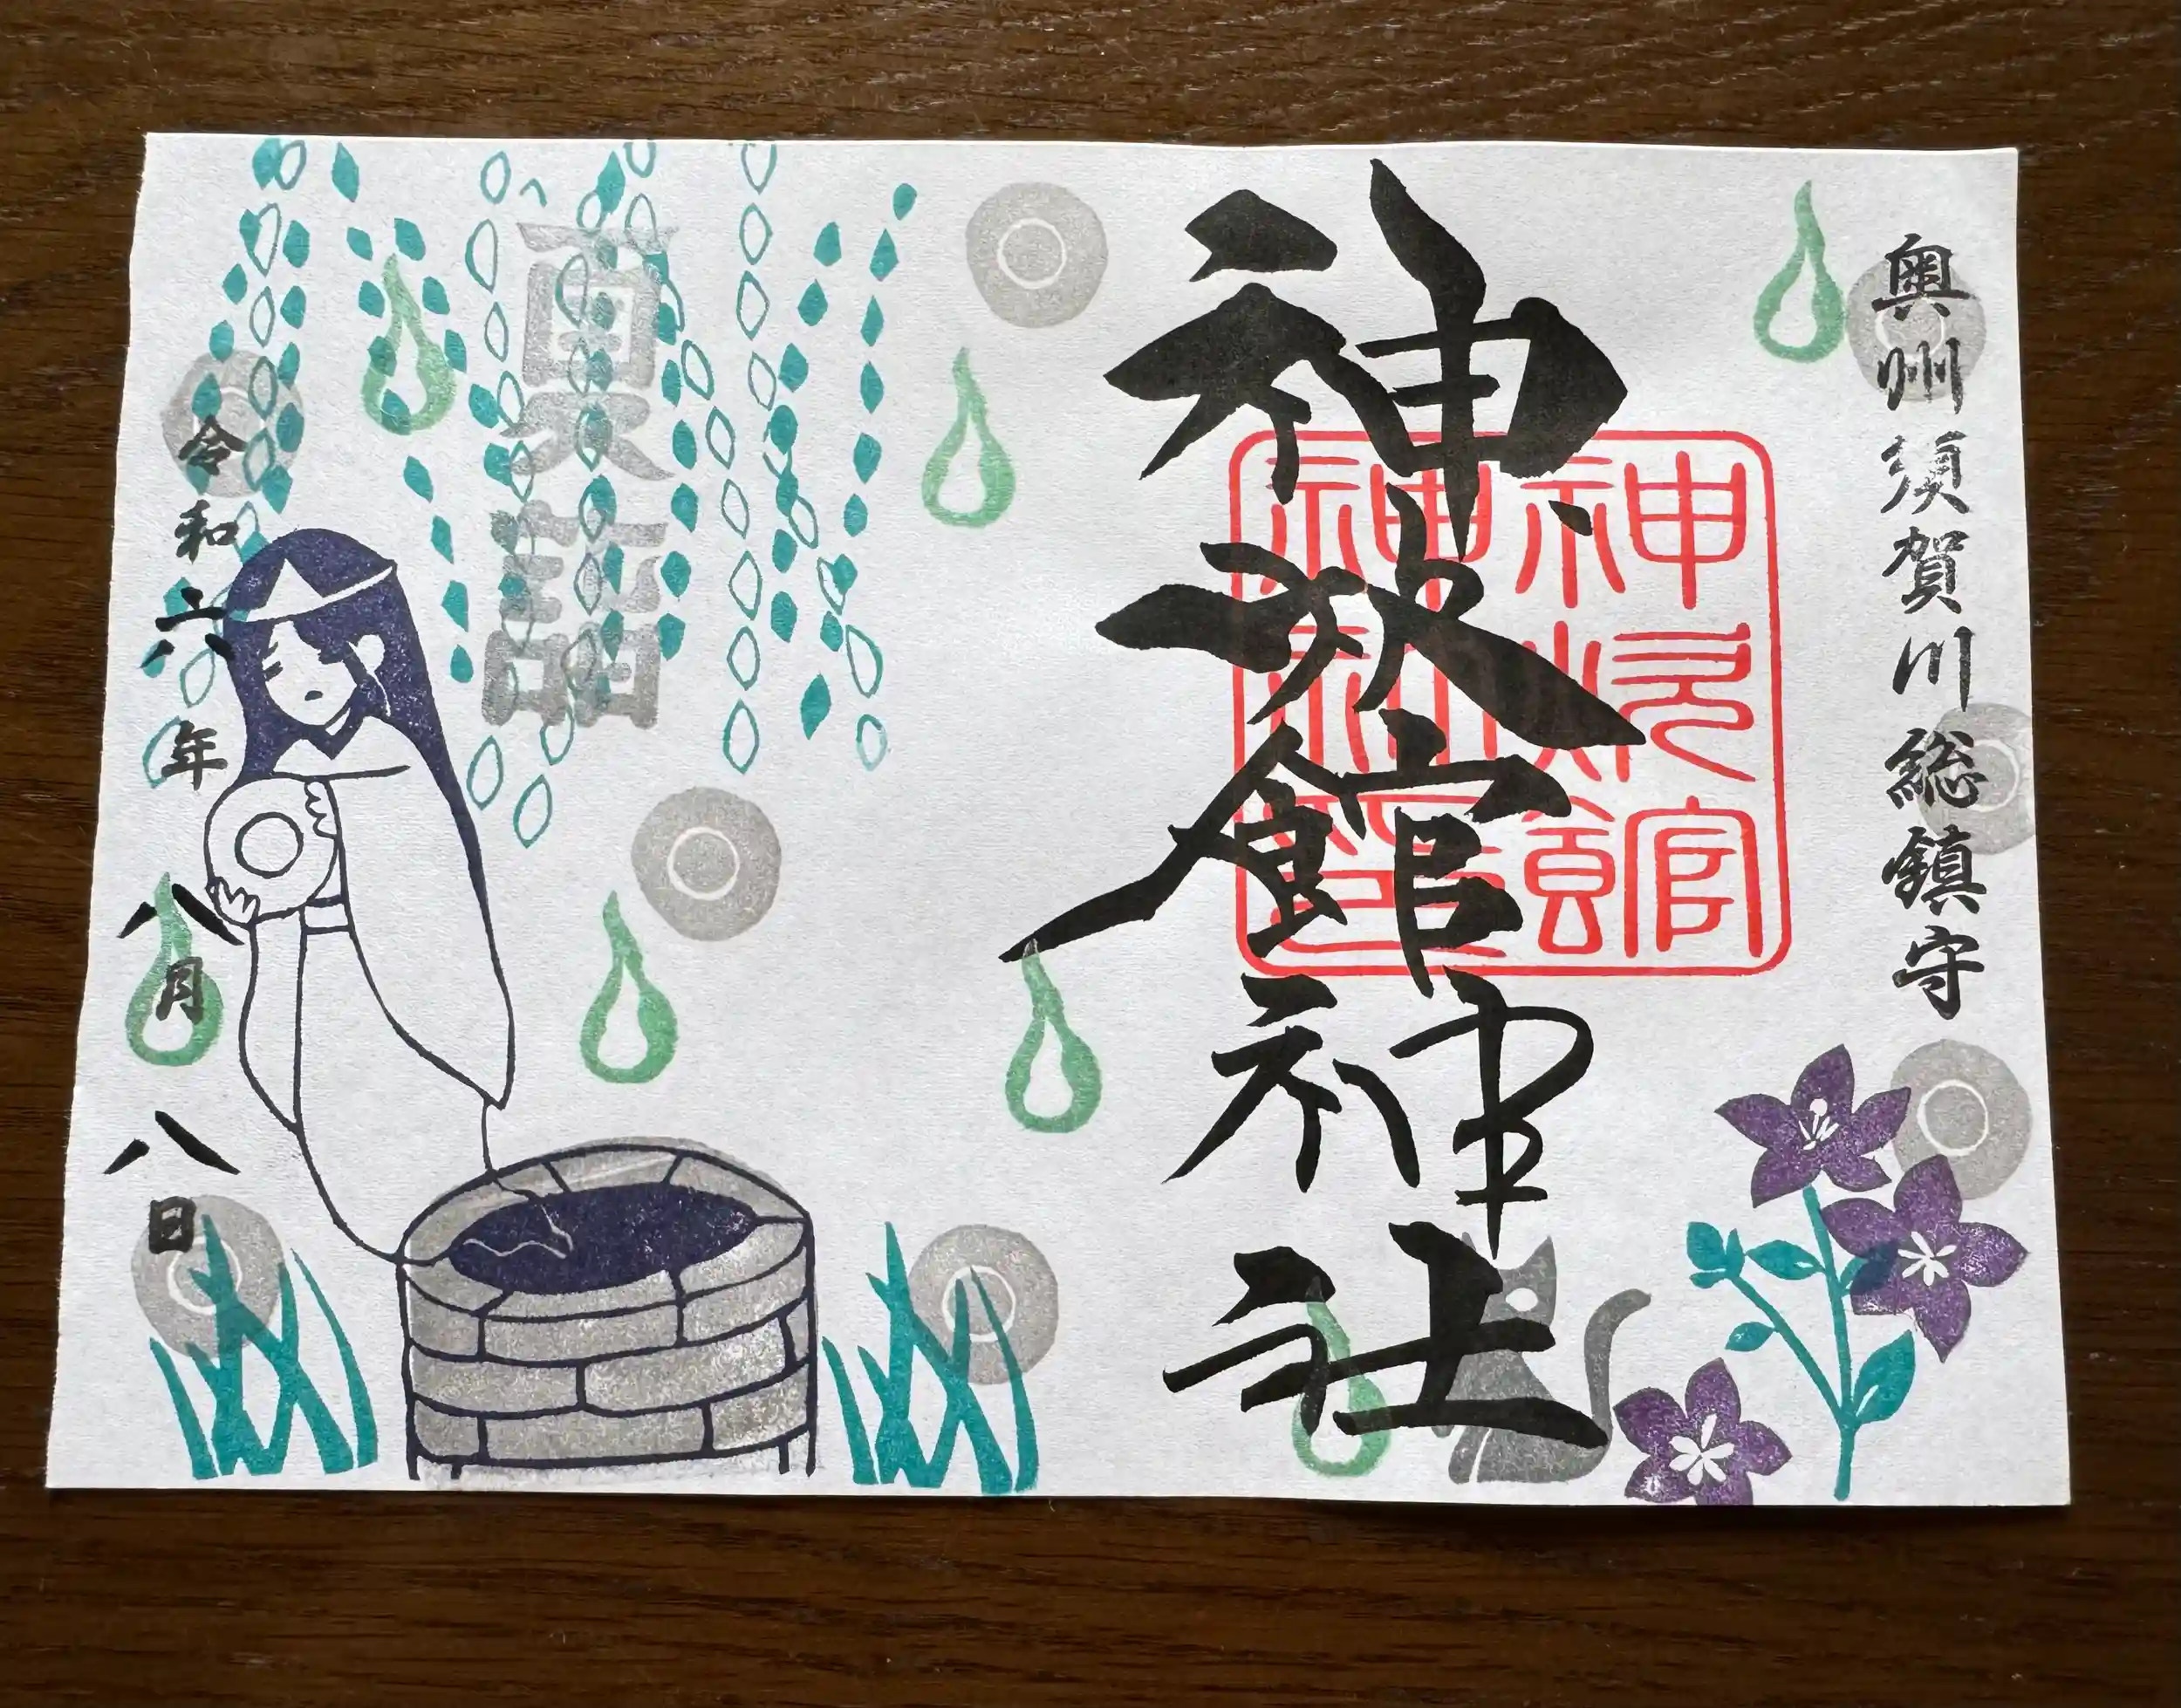 奥州須賀川総鎮守
神炊館神社
神炊館
神社
夏詣
令和六年八月八日